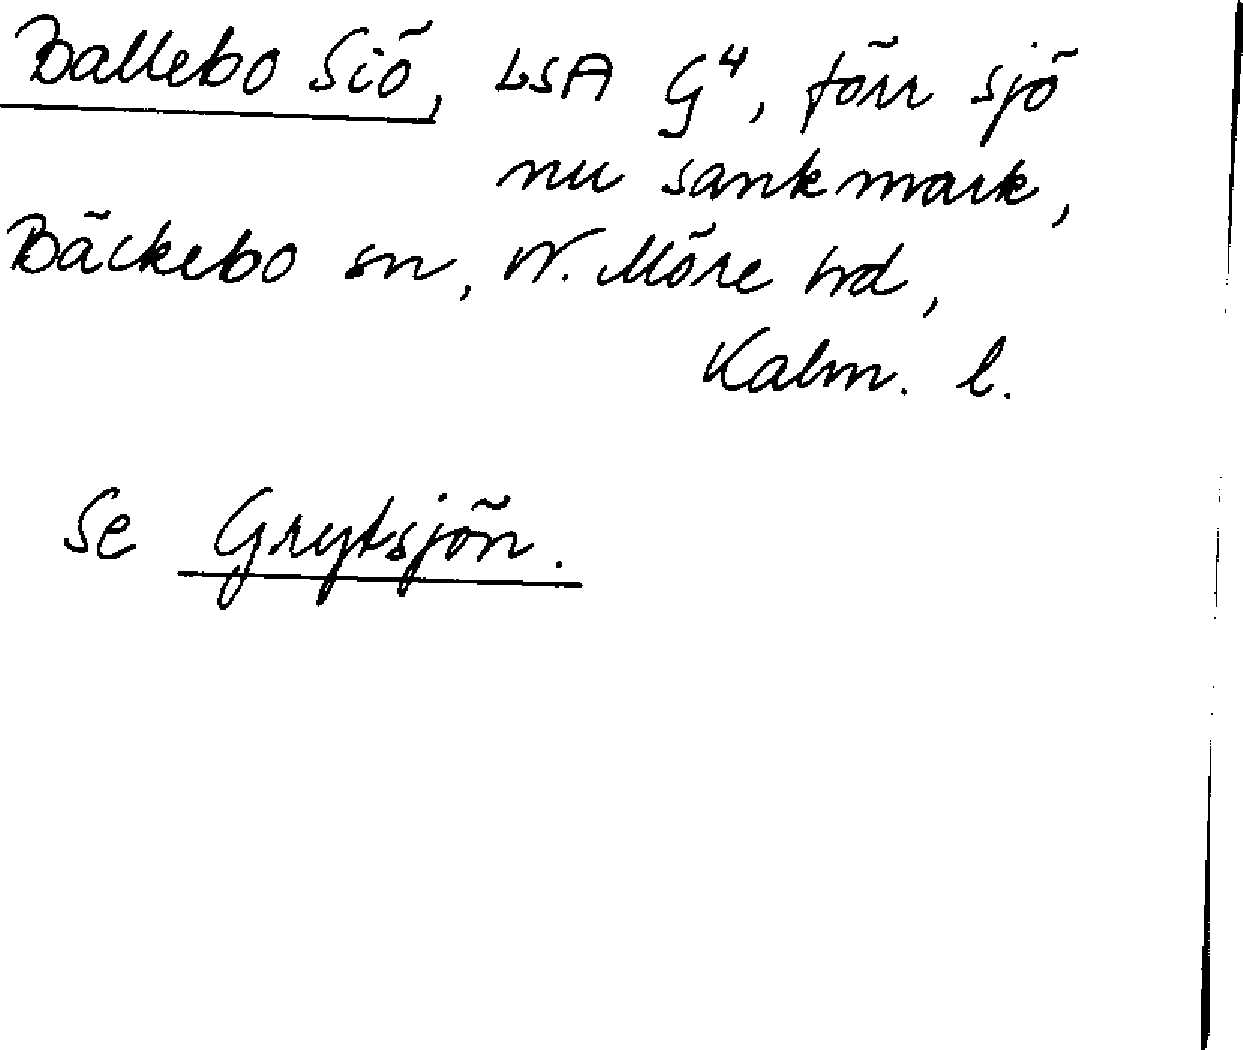 Ballebo Siö, LSA G⁴, förr sjö
nu sankmark,
Bäckebo sn, N. Möre hd,
Kalm. l.
Se Grytsjön.